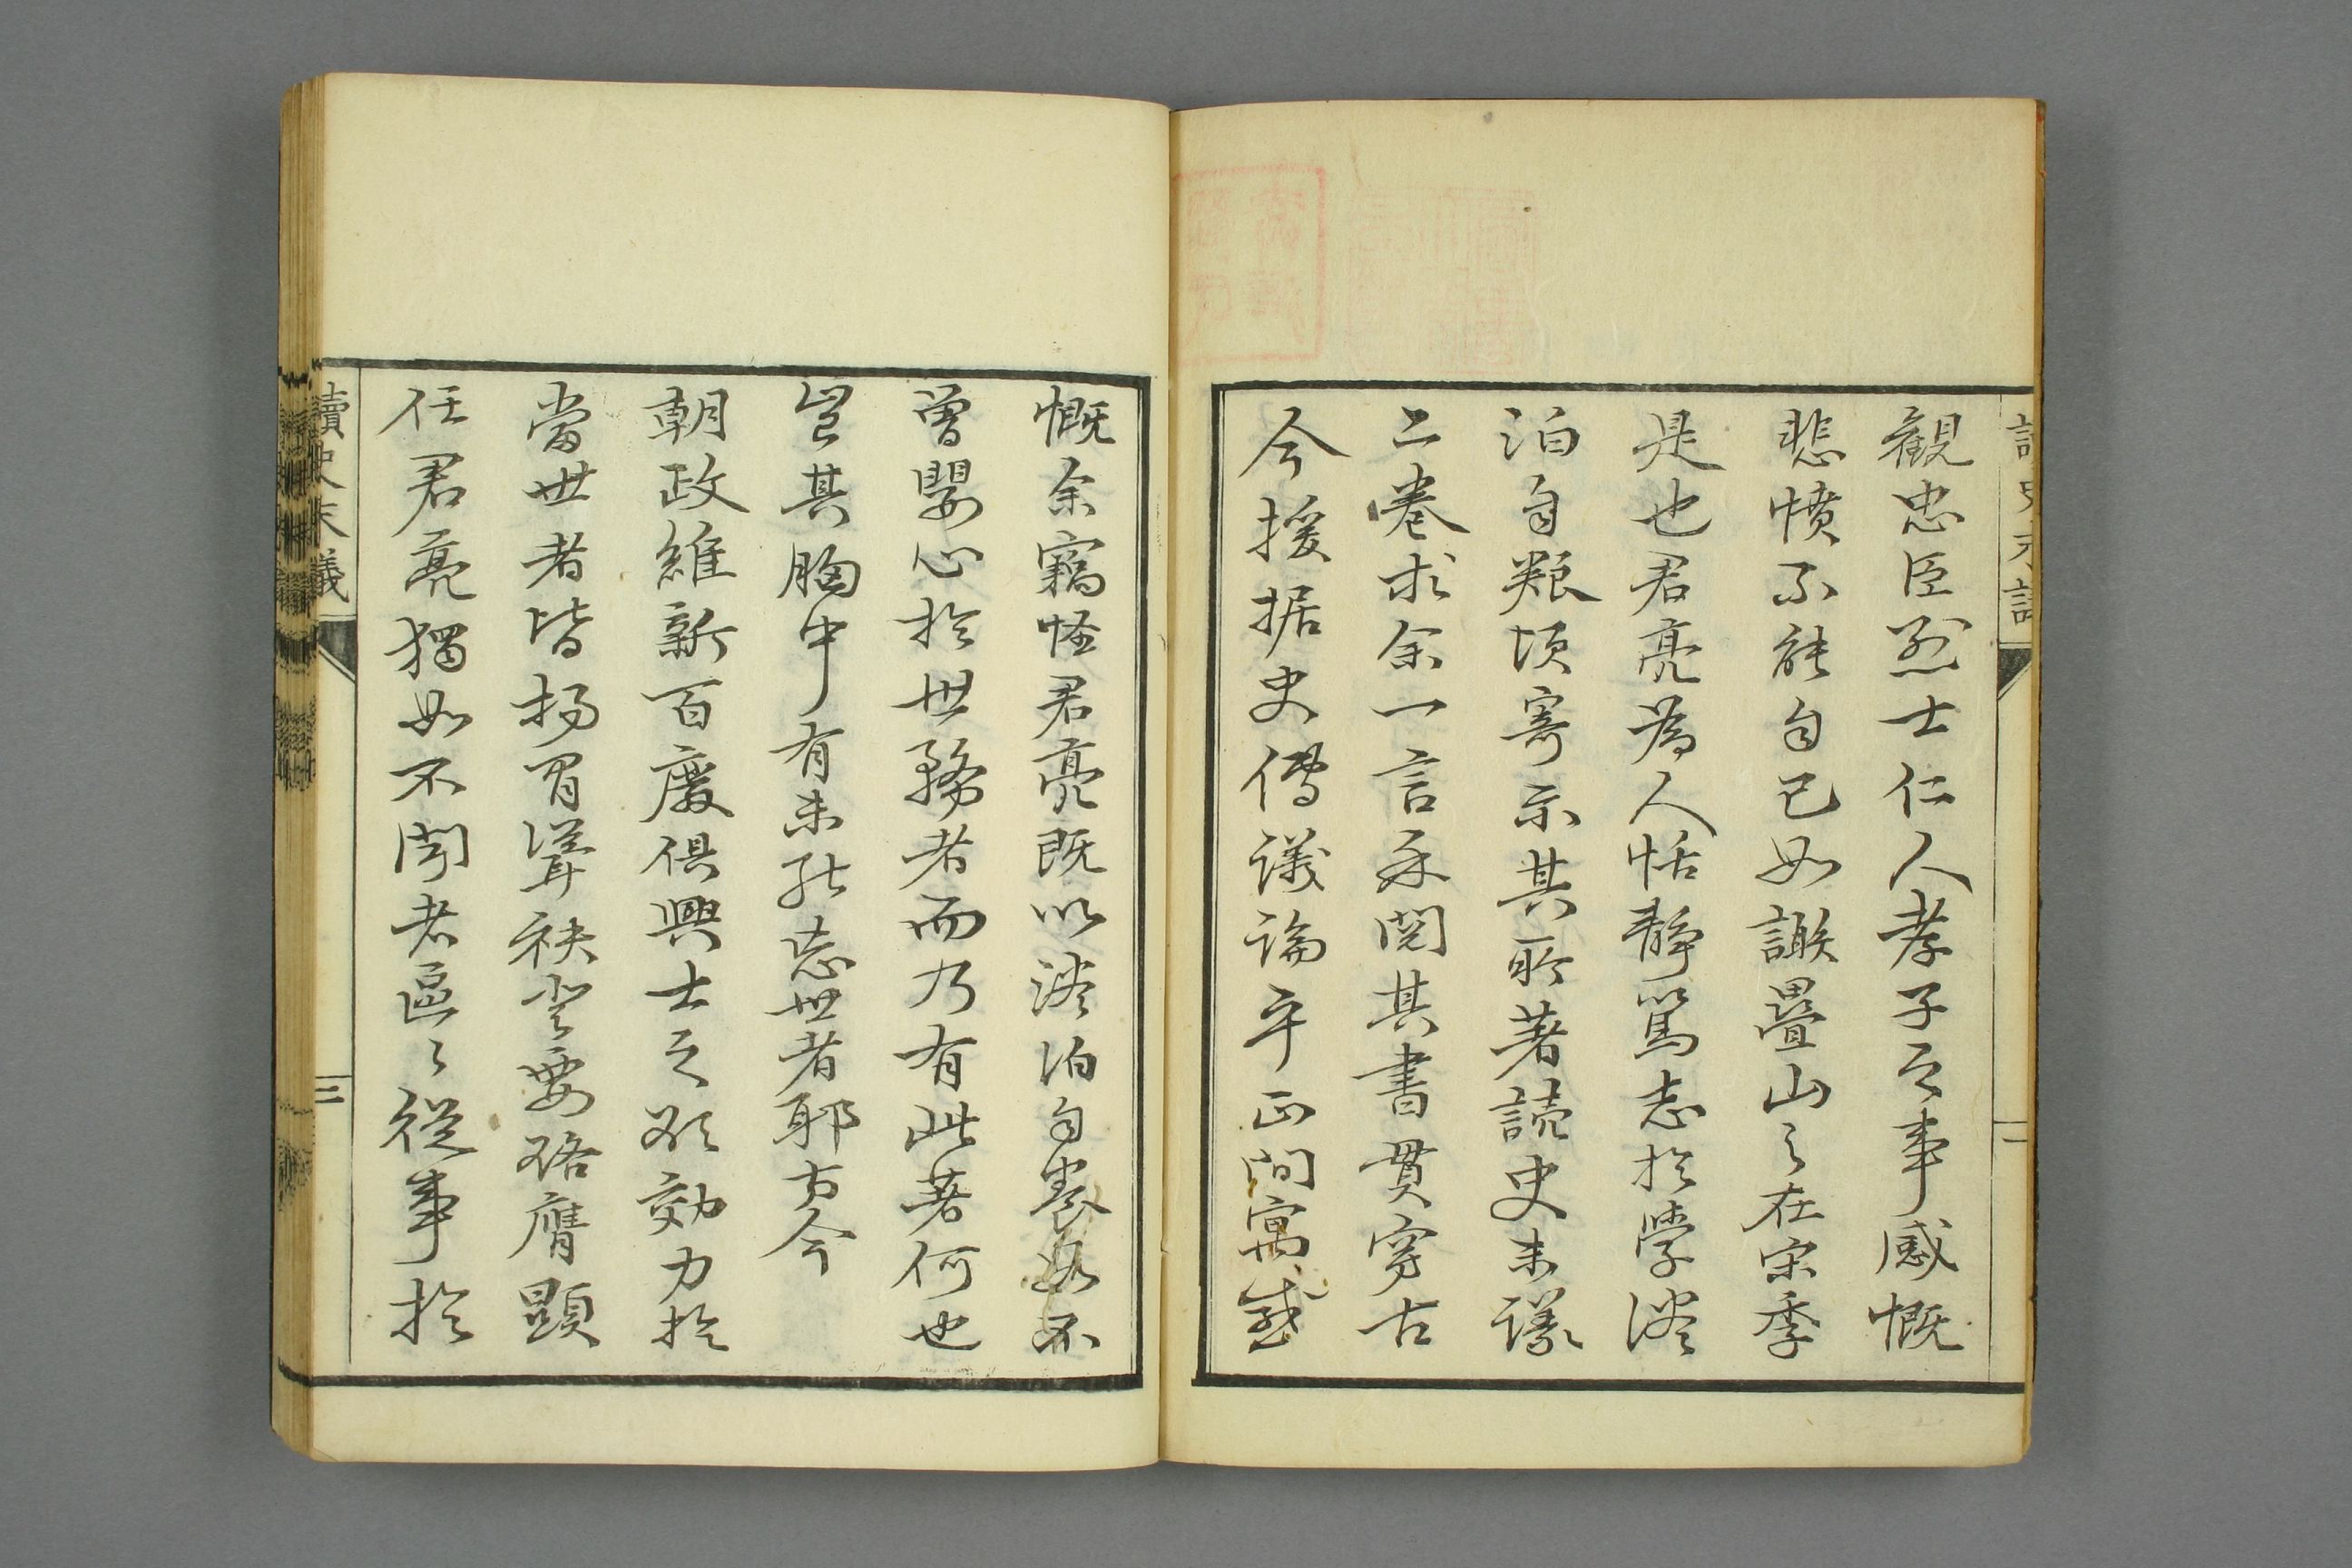 觀忠臣烈士仁人孝子之事感慨
悲憤不能自已如謝疊山之在宋季
是也君亮為人恬靜篤志於學淡
泊自娛頃寄示其所著讀史末議
二卷求余一言余閱其書貫穿古
今援据史傳議論平正間寓感
慨余竊怪君亮既以淡泊自養如不
曾嬰心於世務者而乃有此著何也
豈其胸中有未能忘世者耶方今
朝政維新百廢俱興士之欲効力於
當世者皆揚眉聳袂登要路膺顯
任君亮獨如不聞者區々從事於
讀史末議
三